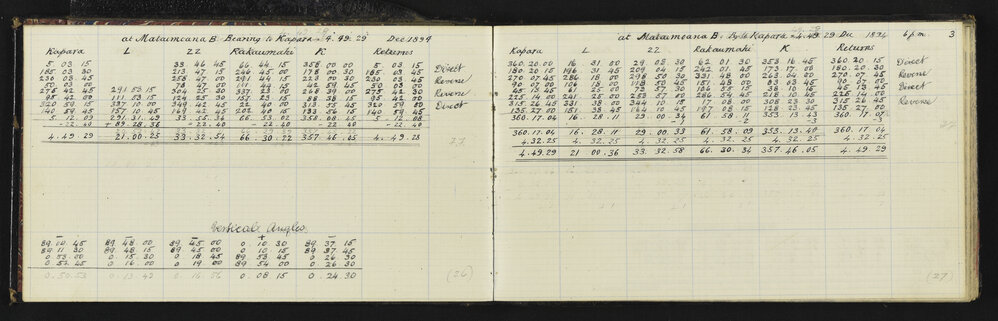 at Mataimoana B. Bearing to Kapara 4.49.29 Dec 1894
Kapara L 22 Rakaumaki K Returns
5 03 15 33 46 45 66 44 15 358 00 00 5 03 15 Direct
185 03 30 213 47 15 246 45 00 178 00 30 185 03 45
230 03 45 258 47 00 291 44 15 223 00 30 230 03 45 Reverse
50 03 00 78 47 00 42 59 45 50 03 00
275 42 45 291 53 15 304 25 00 268 39 00 275 42 30 Reverse
95 42 00 111 53 15 88 38 15 95 42 00
320 59 15 337 10 00 349 42 45 22 40 00 313 55 45 320 59 30 Direct
140 59 45 157 10 45 169 42 45 202 40 15 33 56 15 140 59 45
5 12 09 291.31.49 33.55.34 66.53.02 358 08 45 5 12 08
-22 40 + 89.28.36 -22.40 -22 40 -22 40 -22 40
4.49.29 21.00.25 33.32.54 66.30.22 357.46.05 4.49.28
Vertical Angles
89 10 45 89 48 00 89 45 00 0 10 30 89 37 15
89 11 30 89 48 15 89 45 00 0 10 15 89 37 45
0 53 00 0 15 30 0 18 45 89 53 45 0 26 30
0 52 45 0 16 00 0 19 00 89 54 00 0 26 30
0.50.53 0.13.42 0.08 15 0.24.30
(26)
at Mataimoana B. Bg to Kapara 4.49.29 Dec 1894 6 p.m. 3
Kapara L 22 Rakaumaki K Returns
360.20.00 16 31 50 29 03 30 62 01 30 353 16 45 360 20 15 Direct
180 20 15 196 31 45 209 04 15 242 01 45 173 17 00 180 20 30
270 07 45 286 18 00 298 50 30 331 48 00 263 04 00 270 07 45 Reverse
90 07 00 83 03 45 90 07 00
45 13 45 61 25 00 73 57 30 106 55 15 38 10 15 45 13 45 Direct
225 14 00 241 25 00 253 57 00 286 54 45 218 10 45 225 14 00
315 26 45 331 38 00 344 10 15 17 08 00 308 23 30 315 26 45 Reverse
135 27 00 151 38 45 164 10 135 27 00
360.17.04 16.28.11 29.00 34 61.58.11 353 13 43 360.17.07
-1 -2 -3 -3
360.17.04 16.28.11 29.00.33 61.58.09 353.13.40 360.17.04
4.32.25 4.32.25 4.32.25 4.32.25 4.32.25 4.32.25
4.49.29 21 00.36 33.32.58 66.30.34 357.46.05 4.49.29
(27)